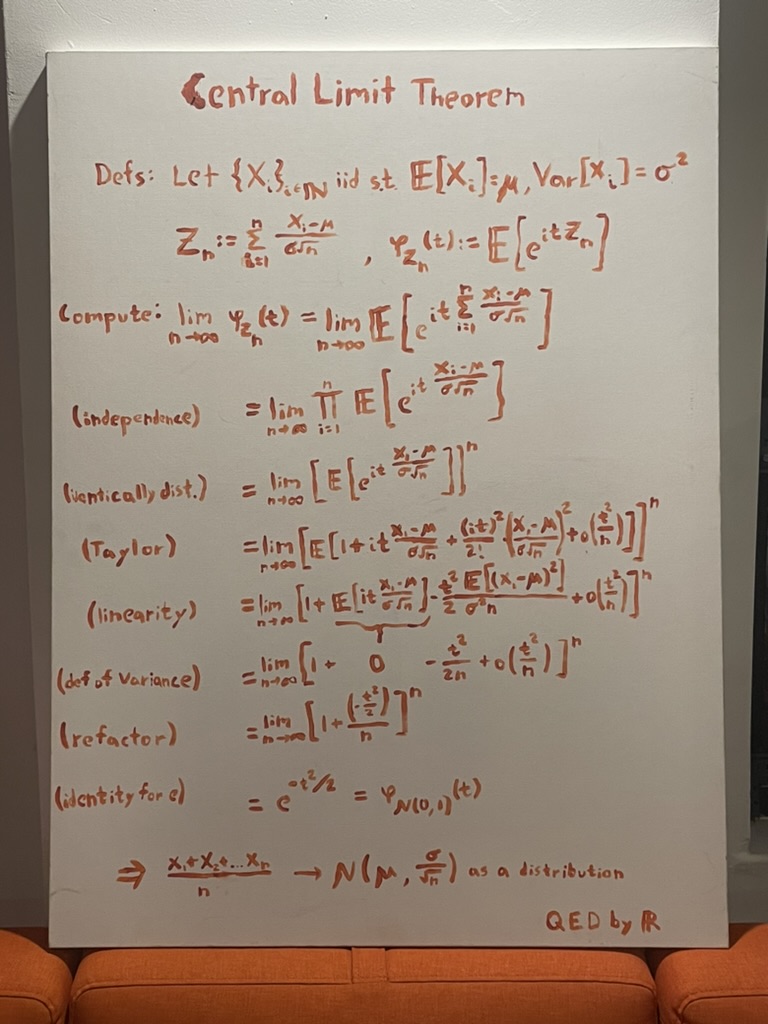 Central Limit Theorem
Defs: Let {Xᵢ}ᵢ∈ℕ iid s.t. 𝔼[Xᵢ]=μ, Var[Xᵢ]=σ²
Zₙ := ∑ᵢ₌₁ⁿ (Xᵢ-μ)/(σ√n) , φ_Zₙ(t) := 𝔼[e^(itZₙ)]
Compute: lim n→∞ φ_Zₙ(t) = lim n→∞ 𝔼[e^(it ∑ᵢ₌₁ⁿ (Xᵢ-μ)/(σ√n))]
(independence) = lim n→∞ ∏ᵢ₌₁ⁿ 𝔼[e^(it (Xᵢ-μ)/(σ√n))]
(identically dist.) = lim n→∞ [𝔼[e^(it (Xᵢ-μ)/(σ√n))]]ⁿ
(Taylor) = lim n→∞ [𝔼[1+it (Xᵢ-μ)/(σ√n) + (it)²/2! ((Xᵢ-μ)/(σ√n))² + o(t²/n)]]ⁿ
(linearity) = lim n→∞ [1+𝔼[it (Xᵢ-μ)/(σ√n)] - t²/2 𝔼[(Xᵢ-μ)²]/(σ²n) + o(t²/n)]ⁿ
(def of variance) = lim n→∞ [1+ 0 - t²/2n + o(t²/n)]ⁿ
(refactor) = lim n→∞ [1+ (-t²/2)/n]ⁿ
(identity for e) = e^(-t²/2) = φ_N(0,1)(t)
⇒ (X₁+X₂+...Xₙ)/n → N(μ, σ/√n) as a distribution
QED by ℝ